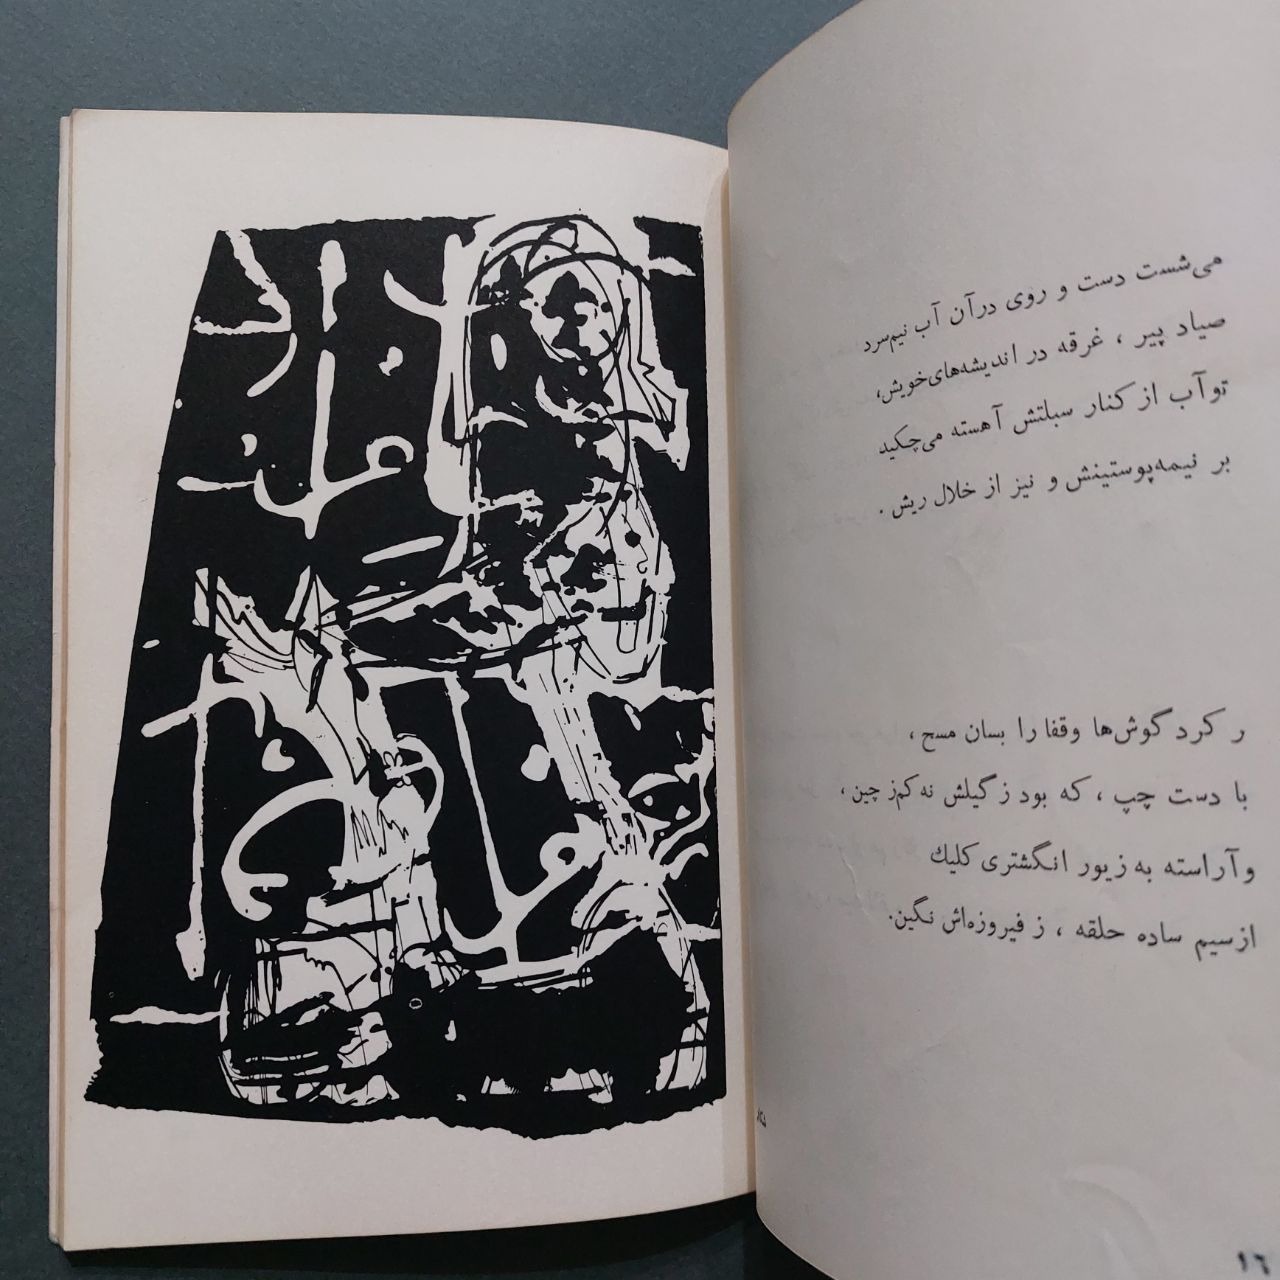 می‌شست دست و روی درآن آب نیم‌سرد
صیاد پیر ، غرقه در اندیشه‌های‌خویش،
توآب از کنار سبلتش آهسته می‌چکید
بر نیمه‌پوستینش و نیز از خلال ریش .
ر کرد گوش‌ها وقفا را بسان مسح ،
با دست چپ ، که بود ز گیلش نه کم‌ز چین ،
وآراسته به زیور انگشتری کلیك
ازسیم ساده حلقه ، ز فیروزه‌اش نگین.
۱۶